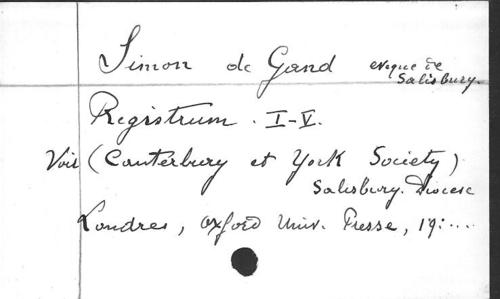 Simon de Gand eveque de
Salisbury.
Registrum. I-V.
Voir (Canterbury et York Society)
Salisbury. Diocese
Londres, Oxford Univ. Presse, 19:...